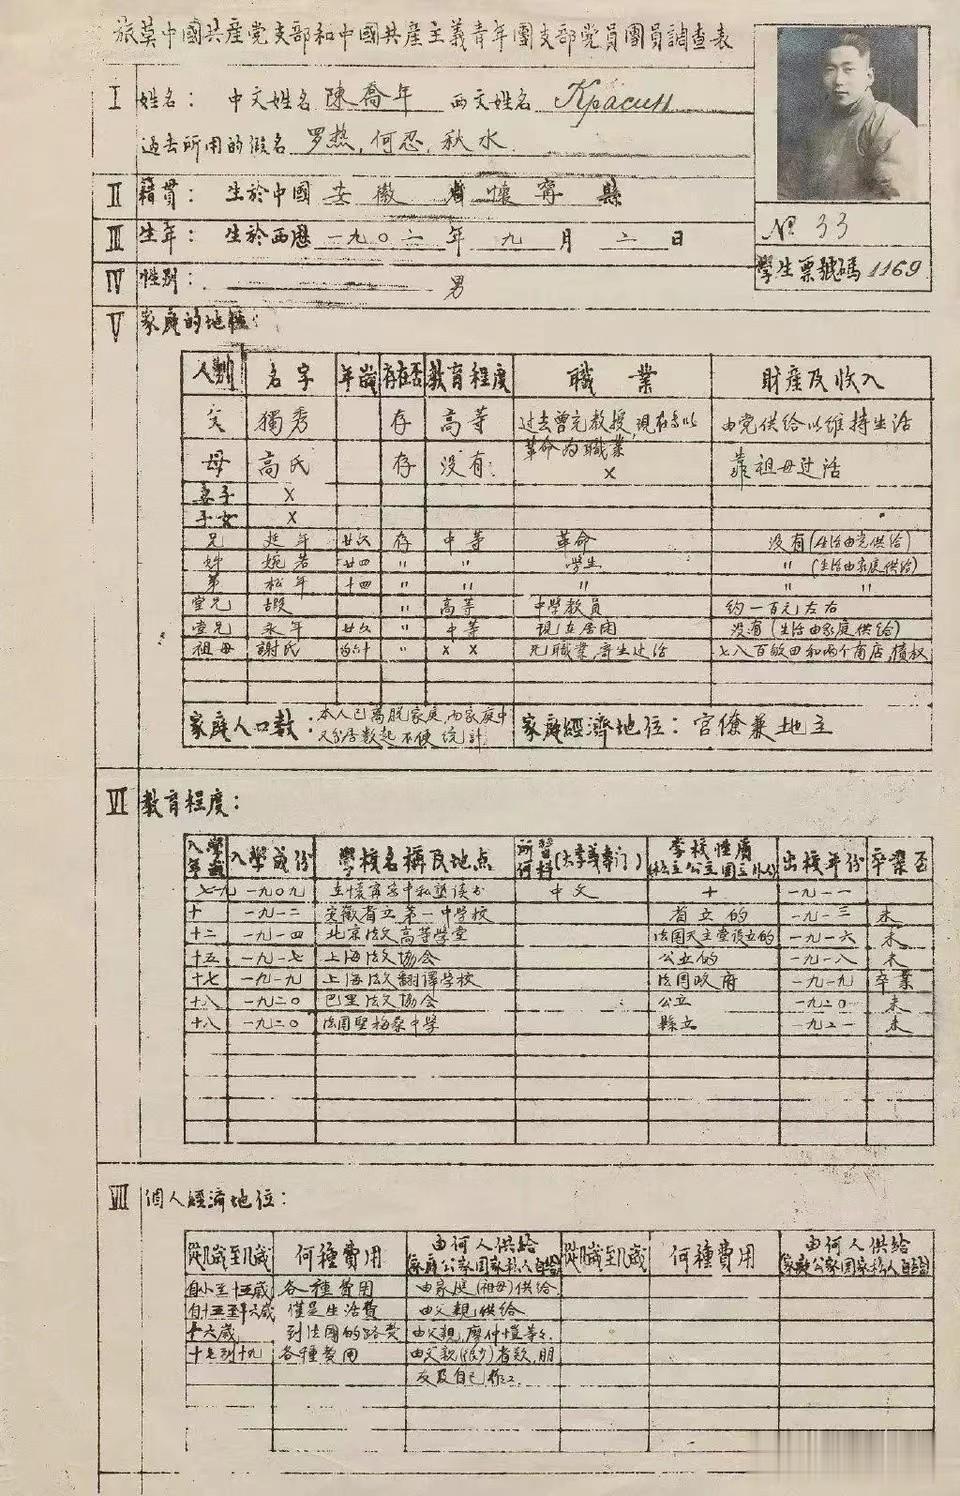 旅莫中國共産党支部和中國共産主義青年團支部党員團員調查表
I 姓名： 中文姓名 陳喬年 西文姓名 Красин
過去所用的假名 罗热，何忍，秋水
II 籍貫： 生於中國 安徽 省 懷寧 縣
III 生年： 生於西歷 一九〇二 年 九 月 二 日
№ 33
學生票號碼 1169
IV 性别： 男
V 家庭的地位：
人别 名字 年歲 存在否 教育程度 職業 財産及收入
父 獨秀 存 高等 过去曾充教授，現在专以革命为職業 由党供给以维持生活
母 高氏 存 没有 × 靠祖母过活
妻子 ×
子女 ×
兄 延年 廿六 存 中等 革命 没有(生活由党供给)
姊 婉若 廿四 〃 〃 學生 〃 (生活由家庭供给)
弟 松年 十四 〃 〃 〃 〃
堂兄 嘏 〃 高等 中學教員 约一百元左右
堂兄 永年 廿六 〃 中等 現在居閒 没有(生活由家庭供给)
祖母 謝氏 〃 × × 職業，寄生过活 七八百畝田和两个商店，債权
家庭人口数： 本人已离脱家庭，而家庭中又分居数起不便统計
家庭經濟地位： 官僚兼地主
VI 教育程度：
入學年歲 入學年份 學校名稱及地点 所習何科(大學或專门) 學校性质(私立公立国立外人) 出校年份 卒業否
七九 一九〇九 在懷寧家中私塾读书 中文 十 一九一一
十 一九一二 安徽省立第一中学校 省立的 一九一三 未
十二 一九一四 北京法文高等学堂 法国天主堂设立的 一九一六 未
十五 一九一七 上海法文協会 公立的 一九一八 未
十七 一九一九 上海法文翻譯学校 法国政府 一九一九 卒業
十八 一九二〇 巴里法文協会 公立 一九二〇 未
十八 一九二〇 法国聖梅桑中学 縣立 一九二一 未
VII 個人經濟地位：
從几歲至几歲 何種費用 由何人供給(家庭公家国家私人自给) 從几歲至几歲 何種費用 由何人供給(家庭公家国家私人自给)
自小至十五歲 各種費用 由家庭(祖母)供给
自十五至十六歲 僅是生活費 由父親供给
十六歲 到法國的路费 由父親，廖仲愷等々
十七到十九 各種費用 由父親(很少)者款，朋友及自己作工